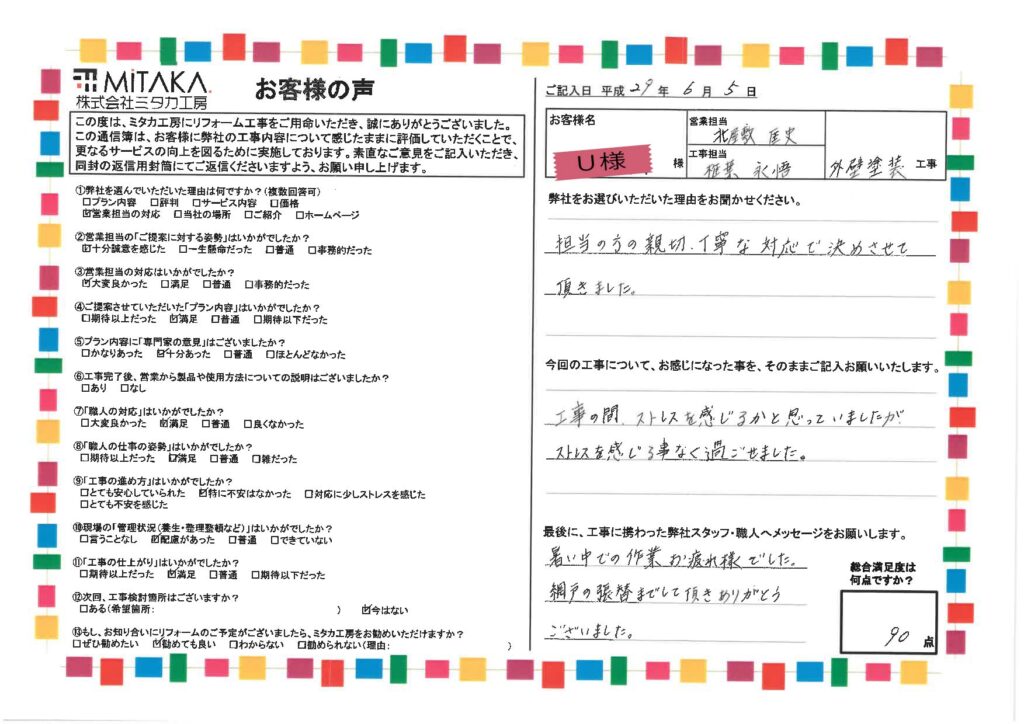 MiTAKA.
株式会社ミタカ工房
お客様の声
この度は、ミタカ工房にリフォーム工事をご用命いただき、誠にありがとうございました。
この通信簿は、お客様に弊社の工事内容について感じたままに評価していただくことで、
更なるサービスの向上を図るために実施しております。素直なご意見をご記入いただき、
同封の返信用封筒にてご返信くださいますよう、お願い申し上げます。
①弊社を選んでいただいた理由は何ですか?(複数回答可)
□プラン内容 □評判 □サービス内容 □価格
☑営業担当の対応 □当社の場所 □ご紹介 □ホームページ
②営業担当の「ご提案に対する姿勢」はいかがでしたか?
☑十分誠意を感じた □一生懸命だった □普通 □事務的だった
③営業担当の対応はいかがでしたか?
☑大変良かった □満足 □普通 □事務的だった
④ご提案させていただいた「プラン内容」はいかがでしたか?
□期待以上だった ☑満足 □普通 □期待以下だった
⑤プラン内容に「専門家の意見」はございましたか?
□かなりあった ☑十分あった □普通 □ほとんどなかった
⑥工事完了後、営業から製品や使用方法についての説明はございましたか?
□あり □なし
⑦「職人の対応」はいかがでしたか?
□大変良かった ☑満足 □普通 □良くなかった
⑧「職人の仕事の姿勢」はいかがでしたか?
□期待以上だった ☑満足 □普通 □雑だった
⑨「工事の進め方」はいかがでしたか?
□とても安心していられた ☑特に不安はなかった □対応に少しストレスを感じた
□とても不安を感じた
⑩現場の「管理状況(養生・整理整頓など)」はいかがでしたか?
□言うことなし ☑配慮があった □普通 □できていない
⑪「工事の仕上がり」はいかがでしたか?
□期待以上だった ☑満足 □普通 □期待以下だった
⑫次回、工事検討箇所はございますか?
□ある(希望箇所: ) ☑今はない
⑬もし、お知り合いにリフォームのご予定がございましたら、ミタカ工房をお勧めいただけますか?
□ぜひ勧めたい ☑勧めても良い □わからない □勧められない(理由: )
ご記入日 平成 29 年 6 月 5 日
お客様名
U様
様
営業担当
北屋敷 匡史
工事担当
永悟
外壁塗装 工事
弊社をお選びいただいた理由をお聞かせください。
担当の方の親切、丁寧な対応で決めさせて
頂きました。
今回の工事について、お感じになった事を、そのままご記入お願いいたします。
工事の間、ストレスを感じるかと思っていましたが、
ストレスを感じる事なく過ごせました。
最後に、工事に携わった弊社スタッフ・職人へメッセージをお願いします。
暑い中での作業お疲れ様でした。
網戸の張替までして頂きありがとう
ございました。
総合満足度は
何点ですか?
90 点